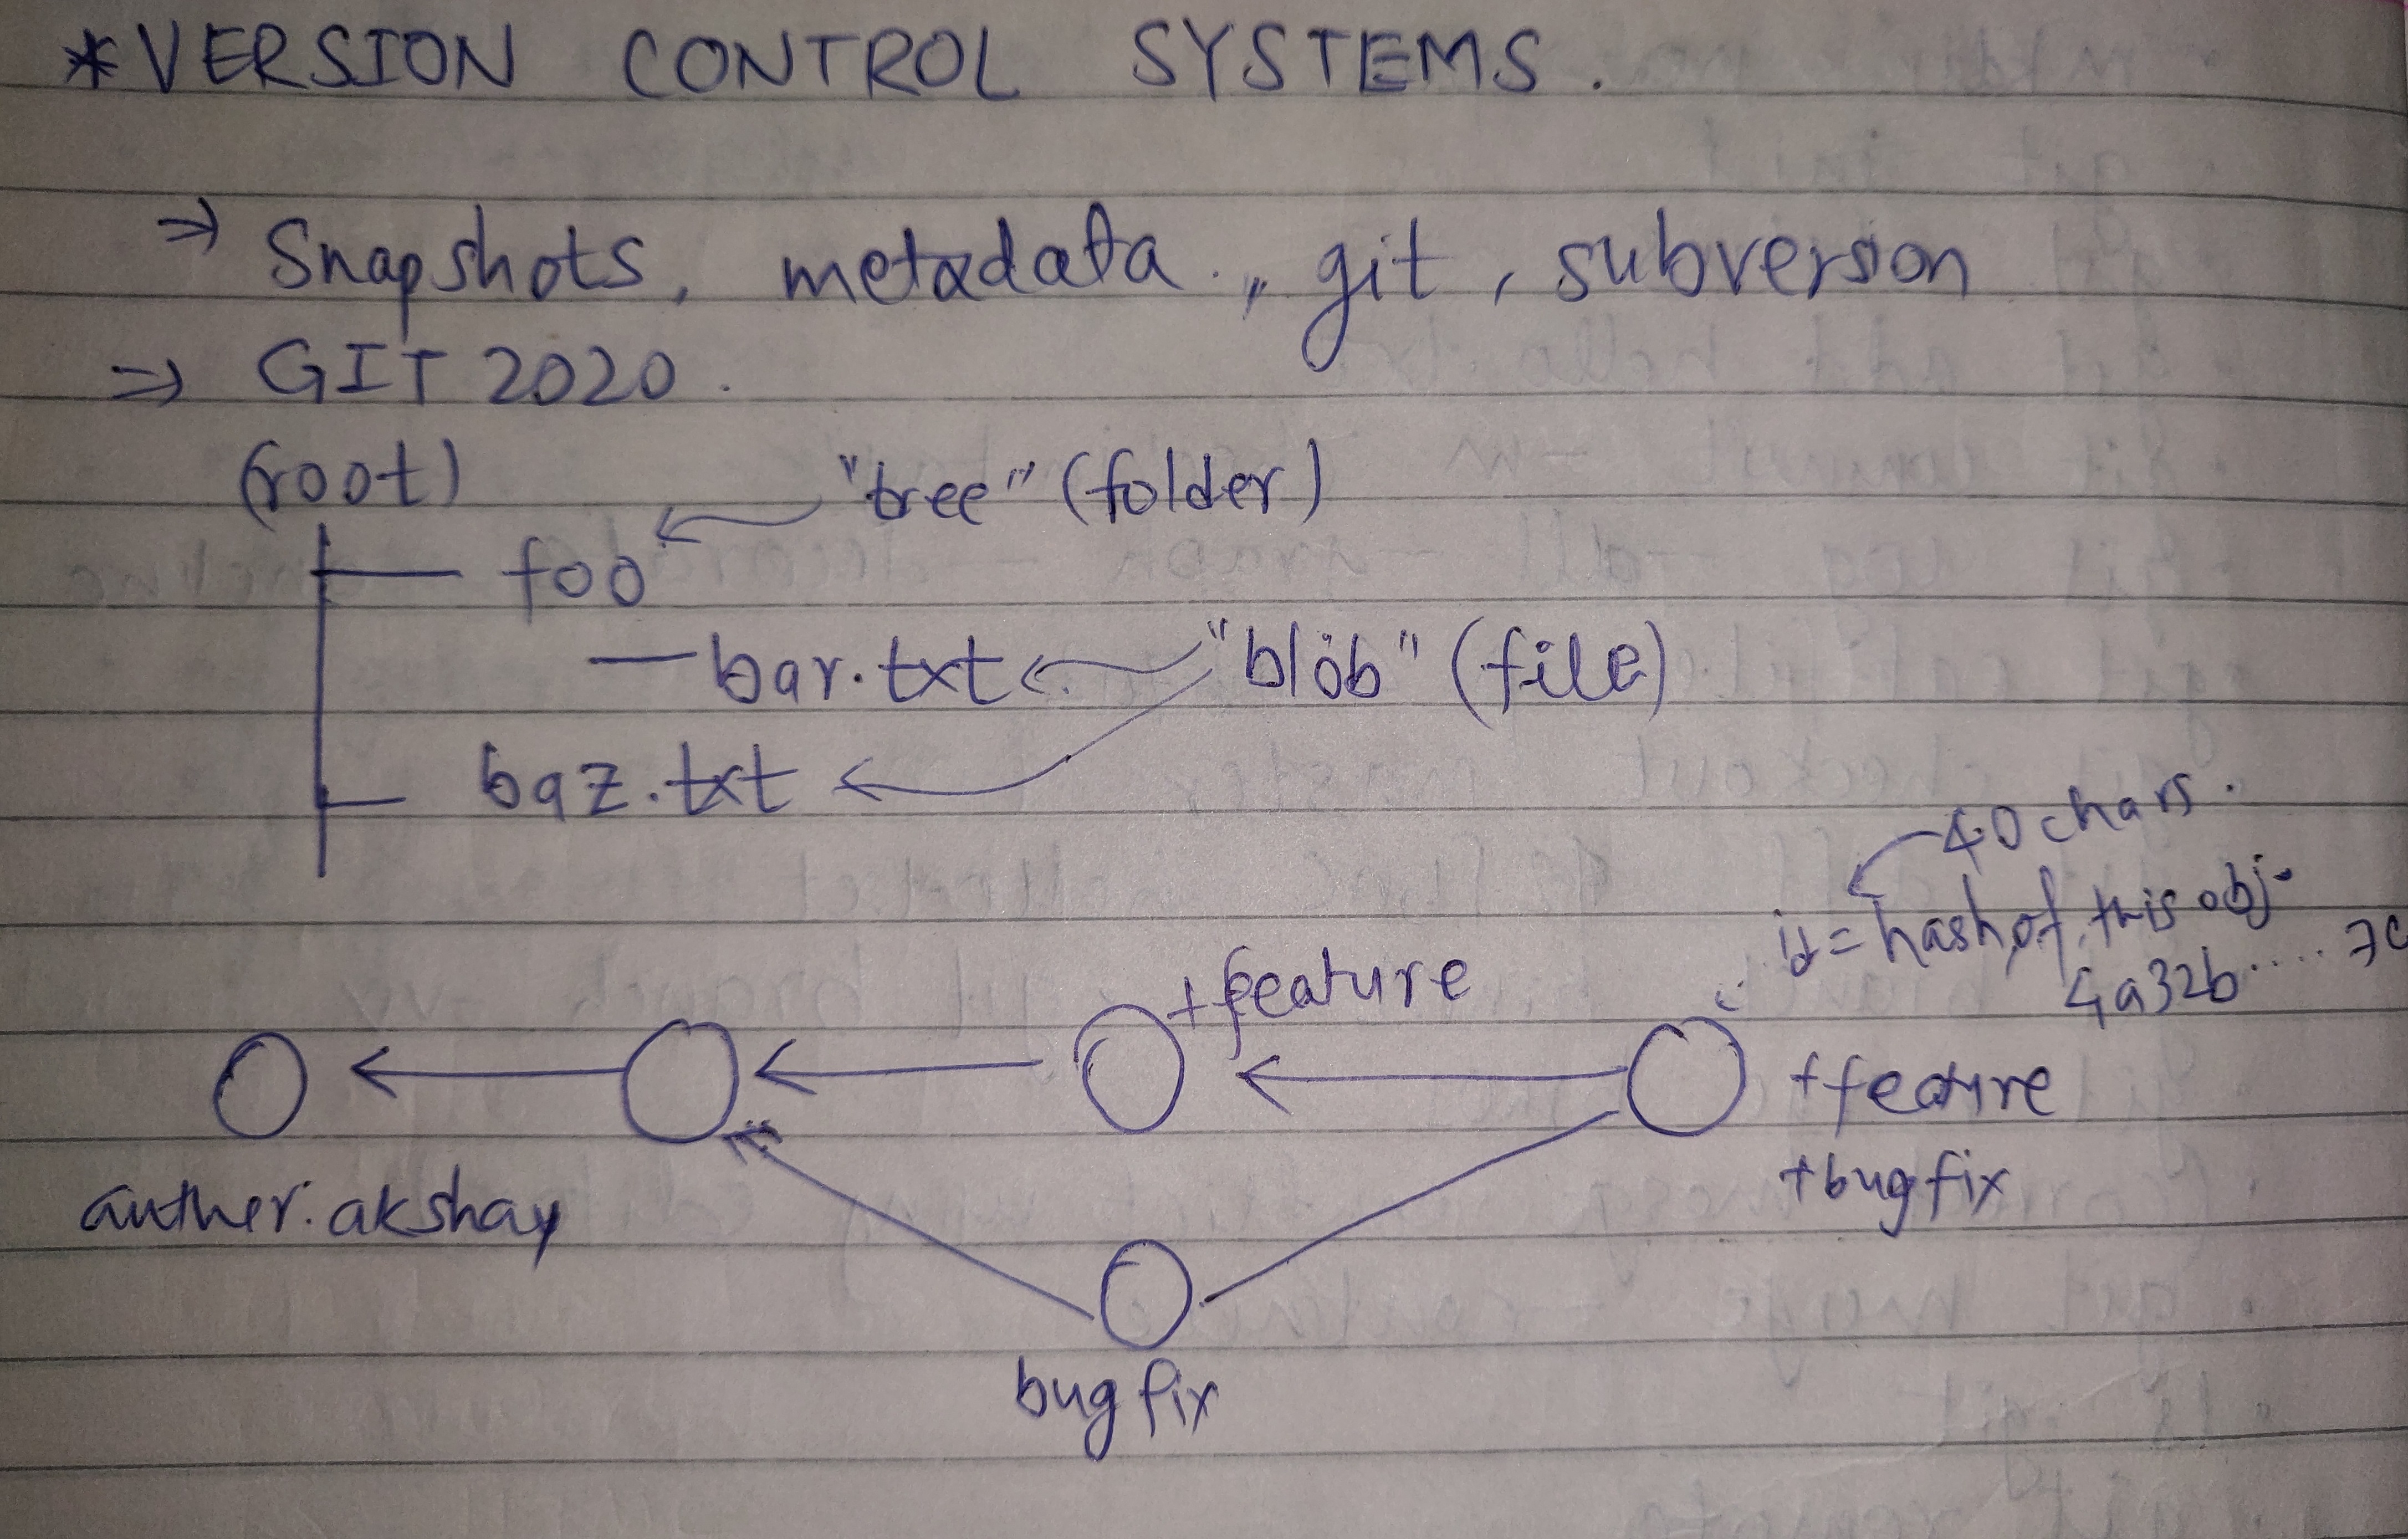 *VERSION CONTROL SYSTEMS.
⇒ Snapshots, metadata., git, subversion
⇒ GIT 2020.
(root)
"tree" (folder)
foo
bar.txt
"blob" (file)
baz.txt
40 chars.
id = hash of this obj.
4a32b.....7c
+feature
+feature
+bugfix
auther: akshay
bug fix